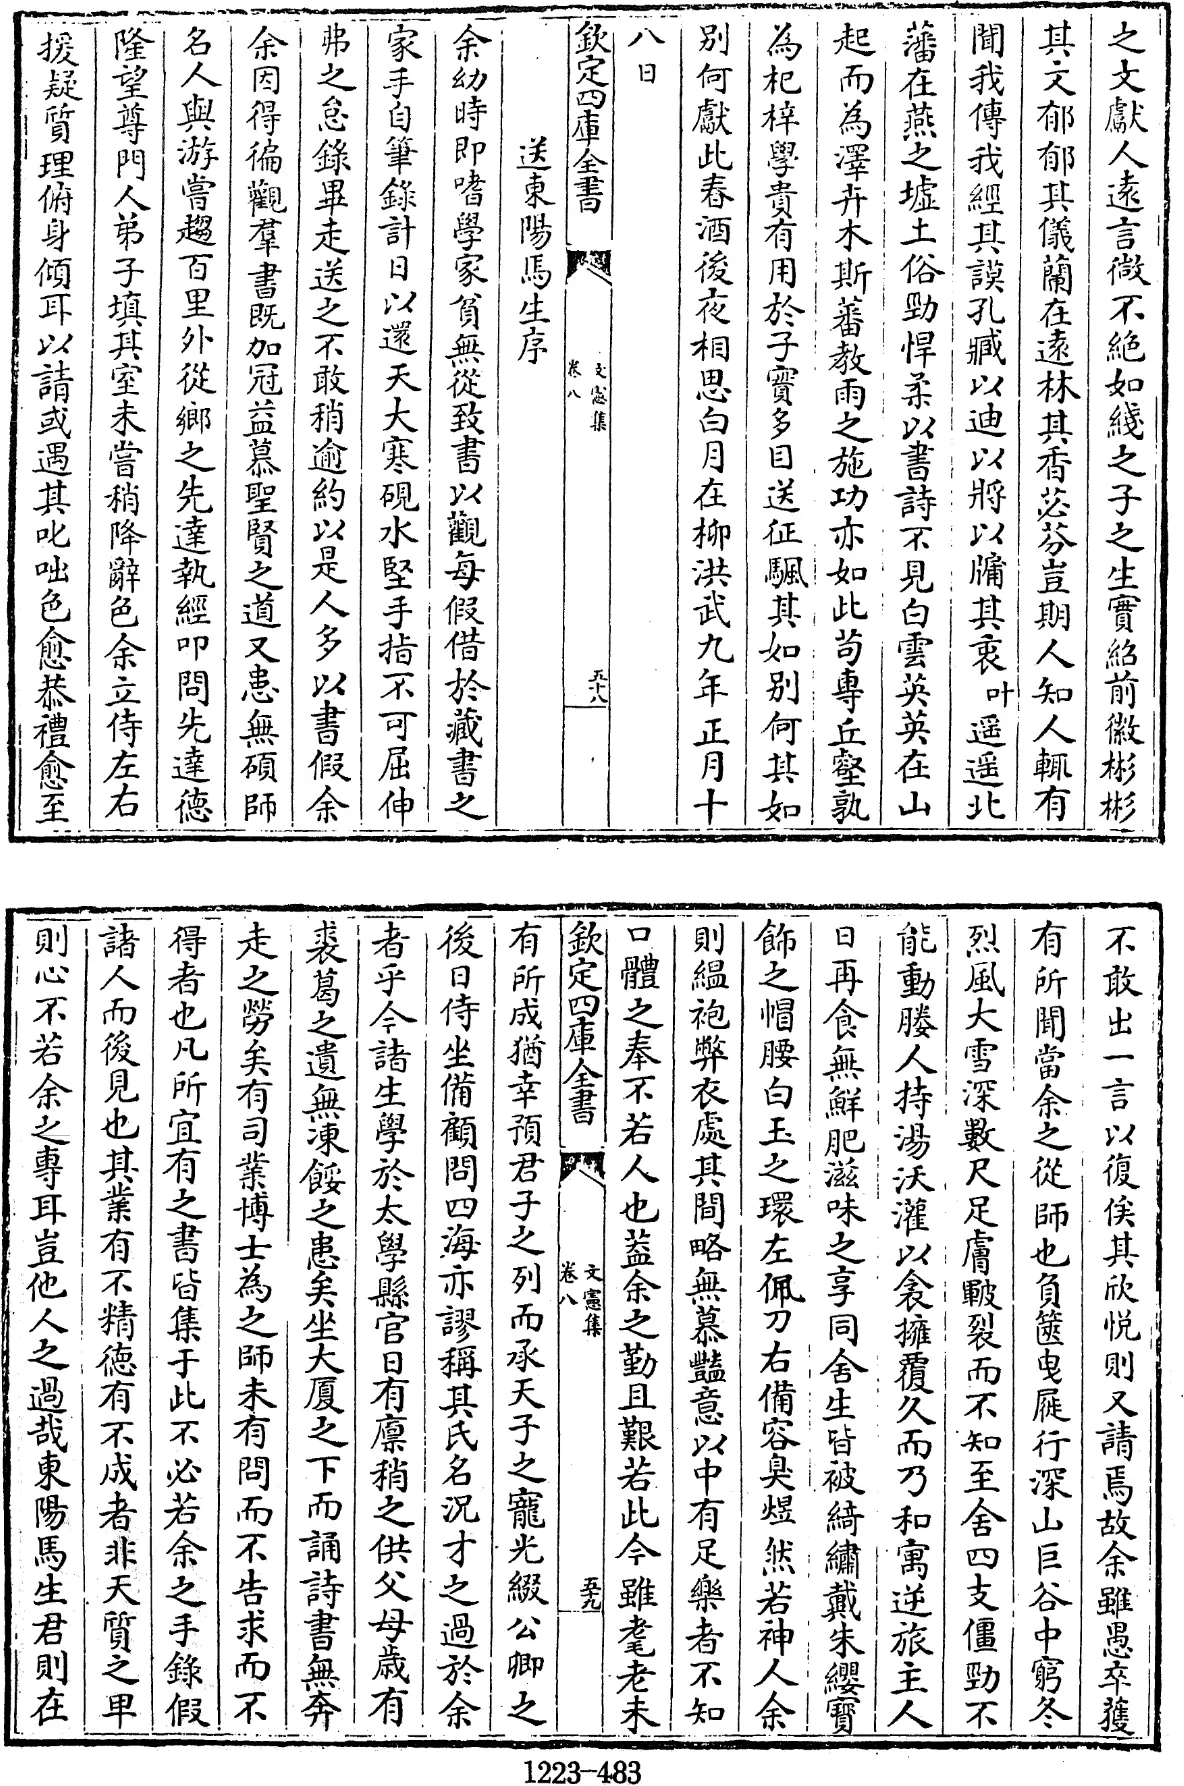 之文獻人遠言微不絕如綫之子之生實紹前徽彬彬
其文郁郁其儀蘭在遠林其香苾芬豈期人知人輒有
聞我傳我經其謨孔臧以迪以將以牖其衷叶遥遥北
藩在燕之墟土俗勁悍柔以書詩不見白雲英英在山
起而為澤卉木斯蕃教雨之施功亦如此茍專丘壑孰
為杞梓學貴有用於子實多目送征颿其如别何其如
别何獻此春酒後夜相思白月在栁洪武九年正月十
八日
欽定四庫全書
文憲集
卷八
五十八
送東陽馬生序
余幼時即嗜學家貧無從致書以觀每假借於藏書之
家手自筆錄計日以還天大寒硯水堅手指不可屈伸
弗之怠錄畢走送之不敢稍逾約以是人多以書假余
余因得徧觀羣書既加冠益慕聖賢之道又患無碩師
名人與游嘗趨百里外從鄉之先達執經叩問先達德
隆望尊門人弟子填其室未嘗稍降辭色余立侍左右
援疑質理俯身傾耳以請或遇其叱咄色愈恭禮愈至
不敢出一言以復俟其欣悦則又請焉故余雖愚卒獲
有所聞當余之從師也負篋曳屣行深山巨谷中窮冬
烈風大雪深數尺足膚皸裂而不知至舍四支僵勁不
能動媵人持湯沃灌以衾擁覆久而乃和寓逆旅主人
日再食無鮮肥滋味之享同舍生皆被綺繡戴朱纓寶
飾之帽腰白玉之環左佩刀右備容臭煜然若神人余
則緼袍弊衣處其間略無慕豔意以中有足樂者不知
口體之奉不若人也葢余之勤且艱若此今雖耄老未
欽定四庫全書
文憲集
卷八
五十九
有所成猶幸預君子之列而承天子之寵光綴公卿之
後日侍坐備顧問四海亦謬稱其氏名況才之過於余
者乎今諸生學於太學縣官日有廪稍之供父母歲有
裘葛之遺無凍餒之患矣坐大厦之下而誦詩書無奔
走之勞矣有司業博士為之師未有問而不告求而不
得者也凡所宜有之書皆集于此不必若余之手錄假
諸人而後見也其業有不精德有不成者非天質之卑
則心不若余之專耳豈他人之過哉東陽馬生君則在
1223-483